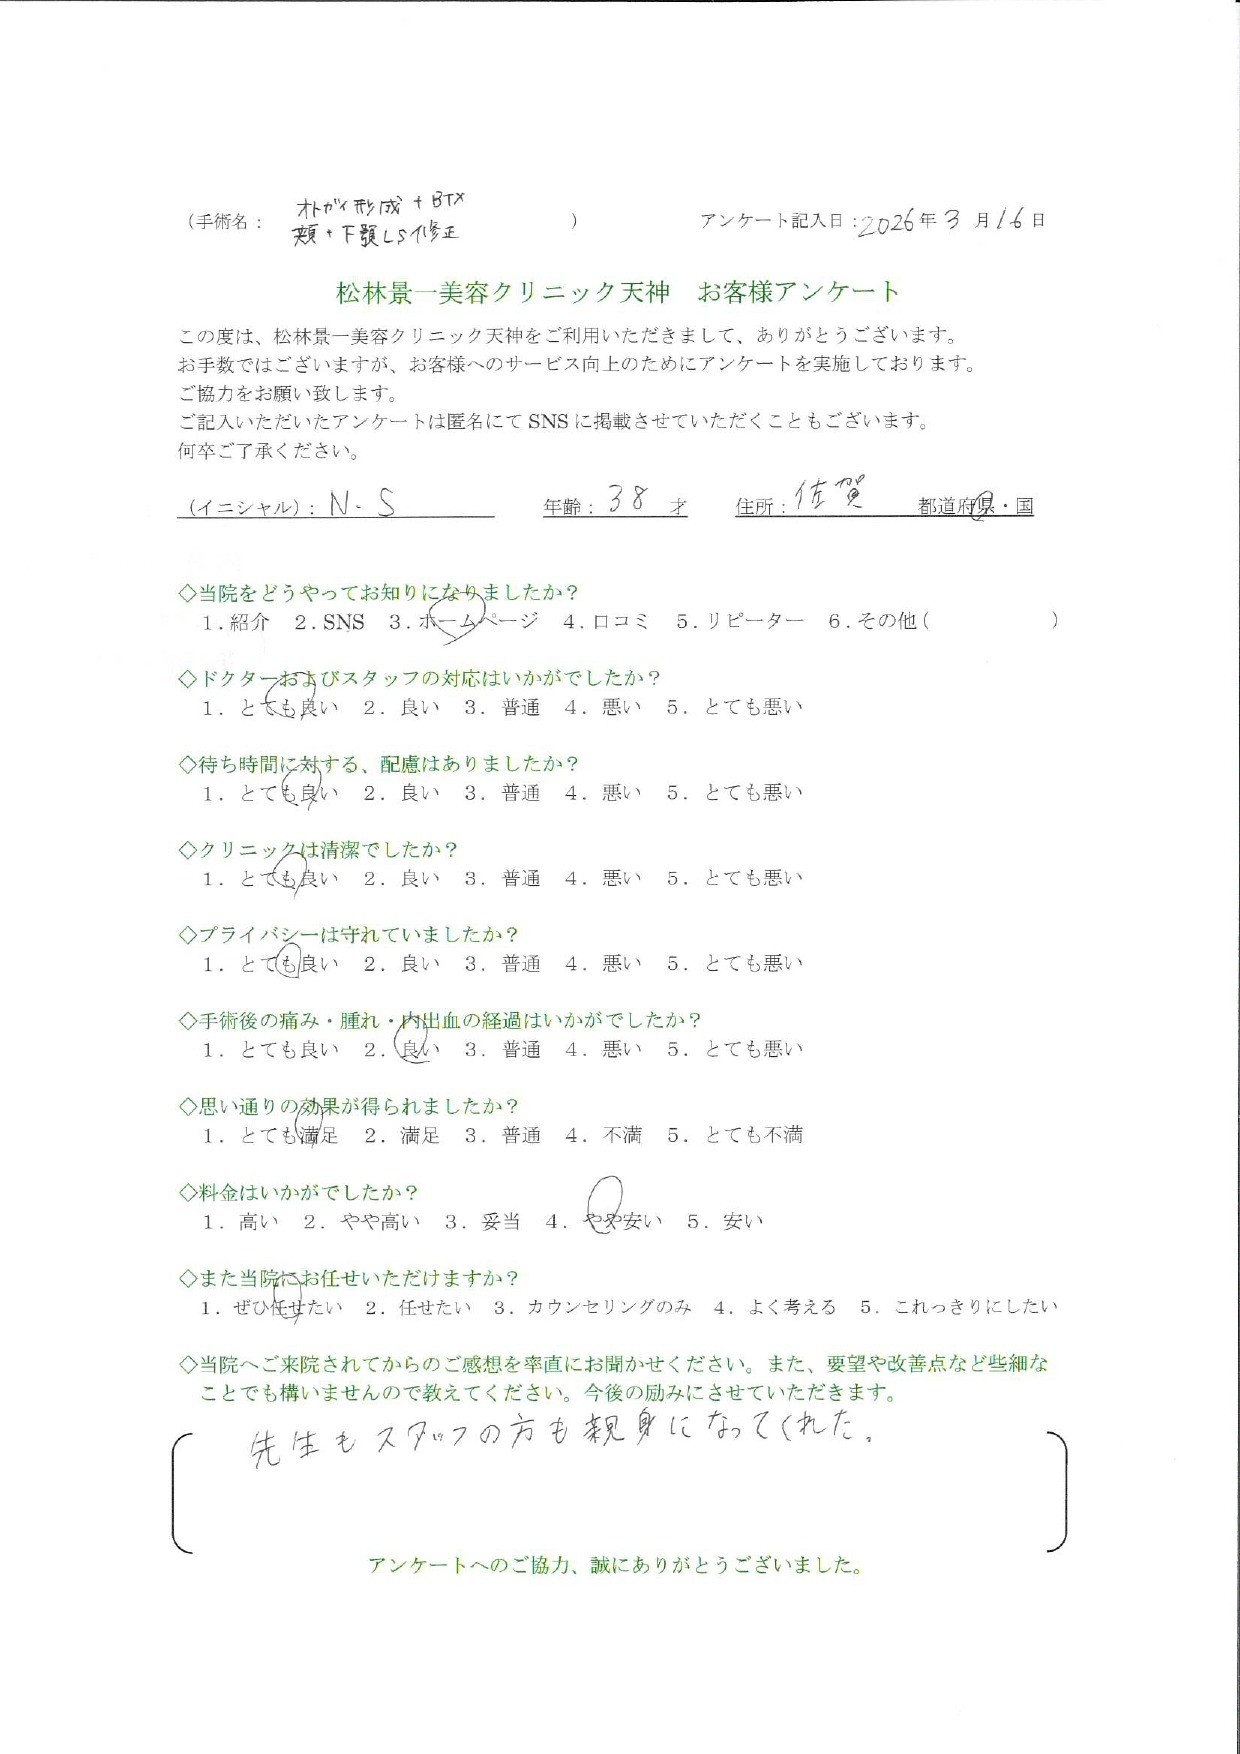 （手術名： オトガイ形成 + BTX ） アンケート記入日：2026年 3 月 16 日
頬 + 下顎LS修正
松林景一美容クリニック天神　お客様アンケート
この度は、松林景一美容クリニック天神をご利用いただきまして、ありがとうございます。
お手数ではございますが、お客様へのサービス向上のためにアンケートを実施しております。
ご協力をお願い致します。
ご記入いただいたアンケートは匿名にて SNS に掲載させていただくこともございます。
何卒ご了承ください。
（イニシャル）： N.S 年齢： 38 才 住所： 佐賀 都道府県・国
◇当院をどうやってお知りになりましたか？
1.紹介　2.SNS　3.ホームページ　4.口コミ　5.リピーター　6.その他（　　　　　　）
◇ドクターおよびスタッフの対応はいかがでしたか？
1．とても良い　2．良い　3．普通　4．悪い　5．とても悪い
◇待ち時間に対する、配慮はありましたか？
1．とても良い　2．良い　3．普通　4．悪い　5．とても悪い
◇クリニックは清潔でしたか？
1．とても良い　2．良い　3．普通　4．悪い　5．とても悪い
◇プライバシーは守れていましたか？
1．とても良い　2．良い　3．普通　4．悪い　5．とても悪い
◇手術後の痛み・腫れ・内出血の経過はいかがでしたか？
1．とても良い　2．良い　3．普通　4．悪い　5．とても悪い
◇思い通りの効果が得られましたか？
1．とても満足　2．満足　3．普通　4．不満　5．とても不満
◇料金はいかがでしたか？
1．高い　2．やや高い　3．妥当　4．やや安い　5．安い
◇また当院にお任せいただけますか？
1．ぜひ任せたい　2．任せたい　3．カウンセリングのみ　4．よく考える　5．これっきりにしたい
◇当院へご来院されてからのご感想を率直にお聞かせください。また、要望や改善点など些細な
ことでも構いませんので教えてください。今後の励みにさせていただきます。
先生もスタッフの方も親身になってくれた。
アンケートへのご協力、誠にありがとうございました。